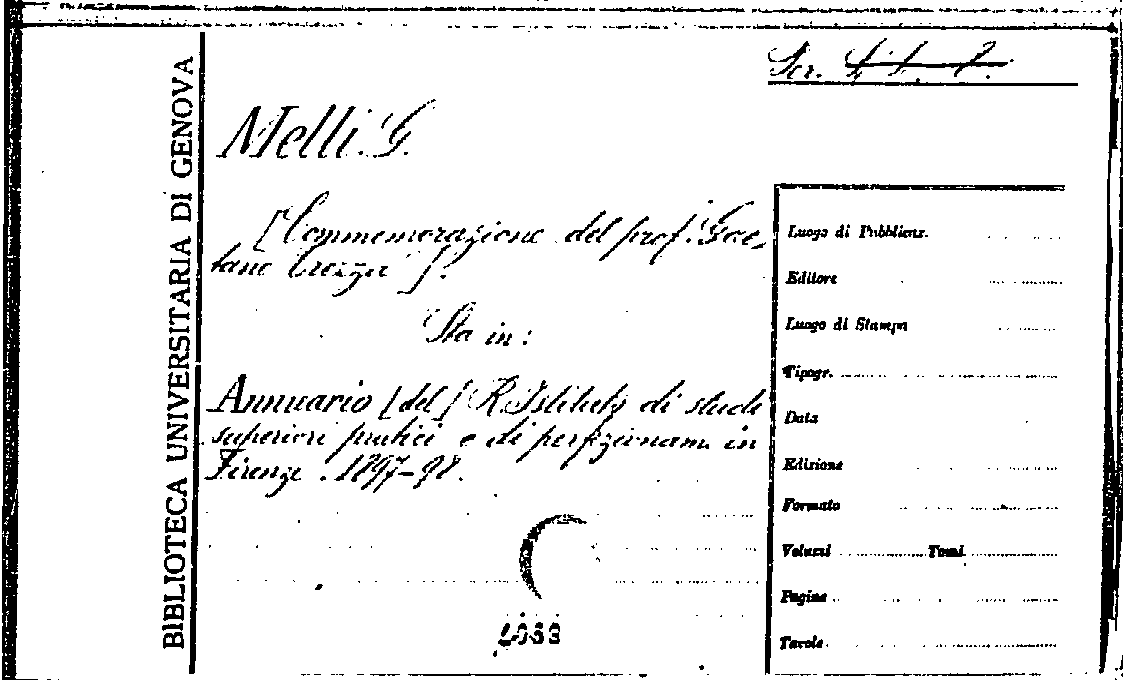 BIBLIOTECA UNIVERSITARIA DI GENOVA
Ser.
Melli G.
[Commemorazione del prof. Gae-
tano Trezza].
Sta in:
Annuario [del] R. Istituto di studi
superiori pratici e di perfezionam. in
Firenze. 1897-98.
Luogo di Pubblicaz.
Editore
Luogo di Stampa
Tipogr.
Data
Edizione
Formato
Volumi Tomi
Pagine
Tavole